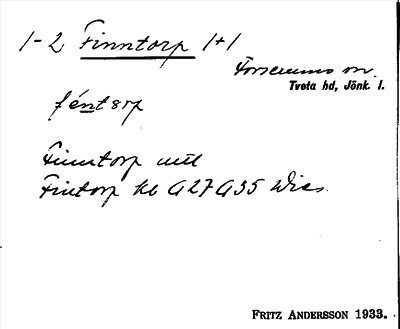 1-2 Finntorp 1+1
Forserums sn.
Tveta hd, Jönk. l.
fént
Finntorp
Fintorp kb G27 G35
FRITZ ANDERSSON 1933.